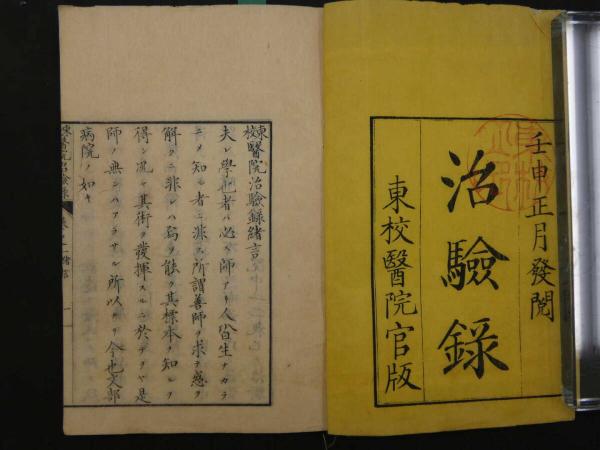 壬申正月發兌
治驗錄
東校醫院官版
東校醫院治驗錄緒言
夫レ學也者ハ必ス師アリ人皆生ナカラ
ニメ知ル者ニ非ス所謂善師ヲ求テ惑ヲ
解クニ非レハ烏ソ能ク其標本ヲ知ルヲ
得ン況ヤ其術ヲ發揮スルニ於テヲヤ是
師ノ無ンハアラサル所以ナリ今也文部
病院ノ如キ